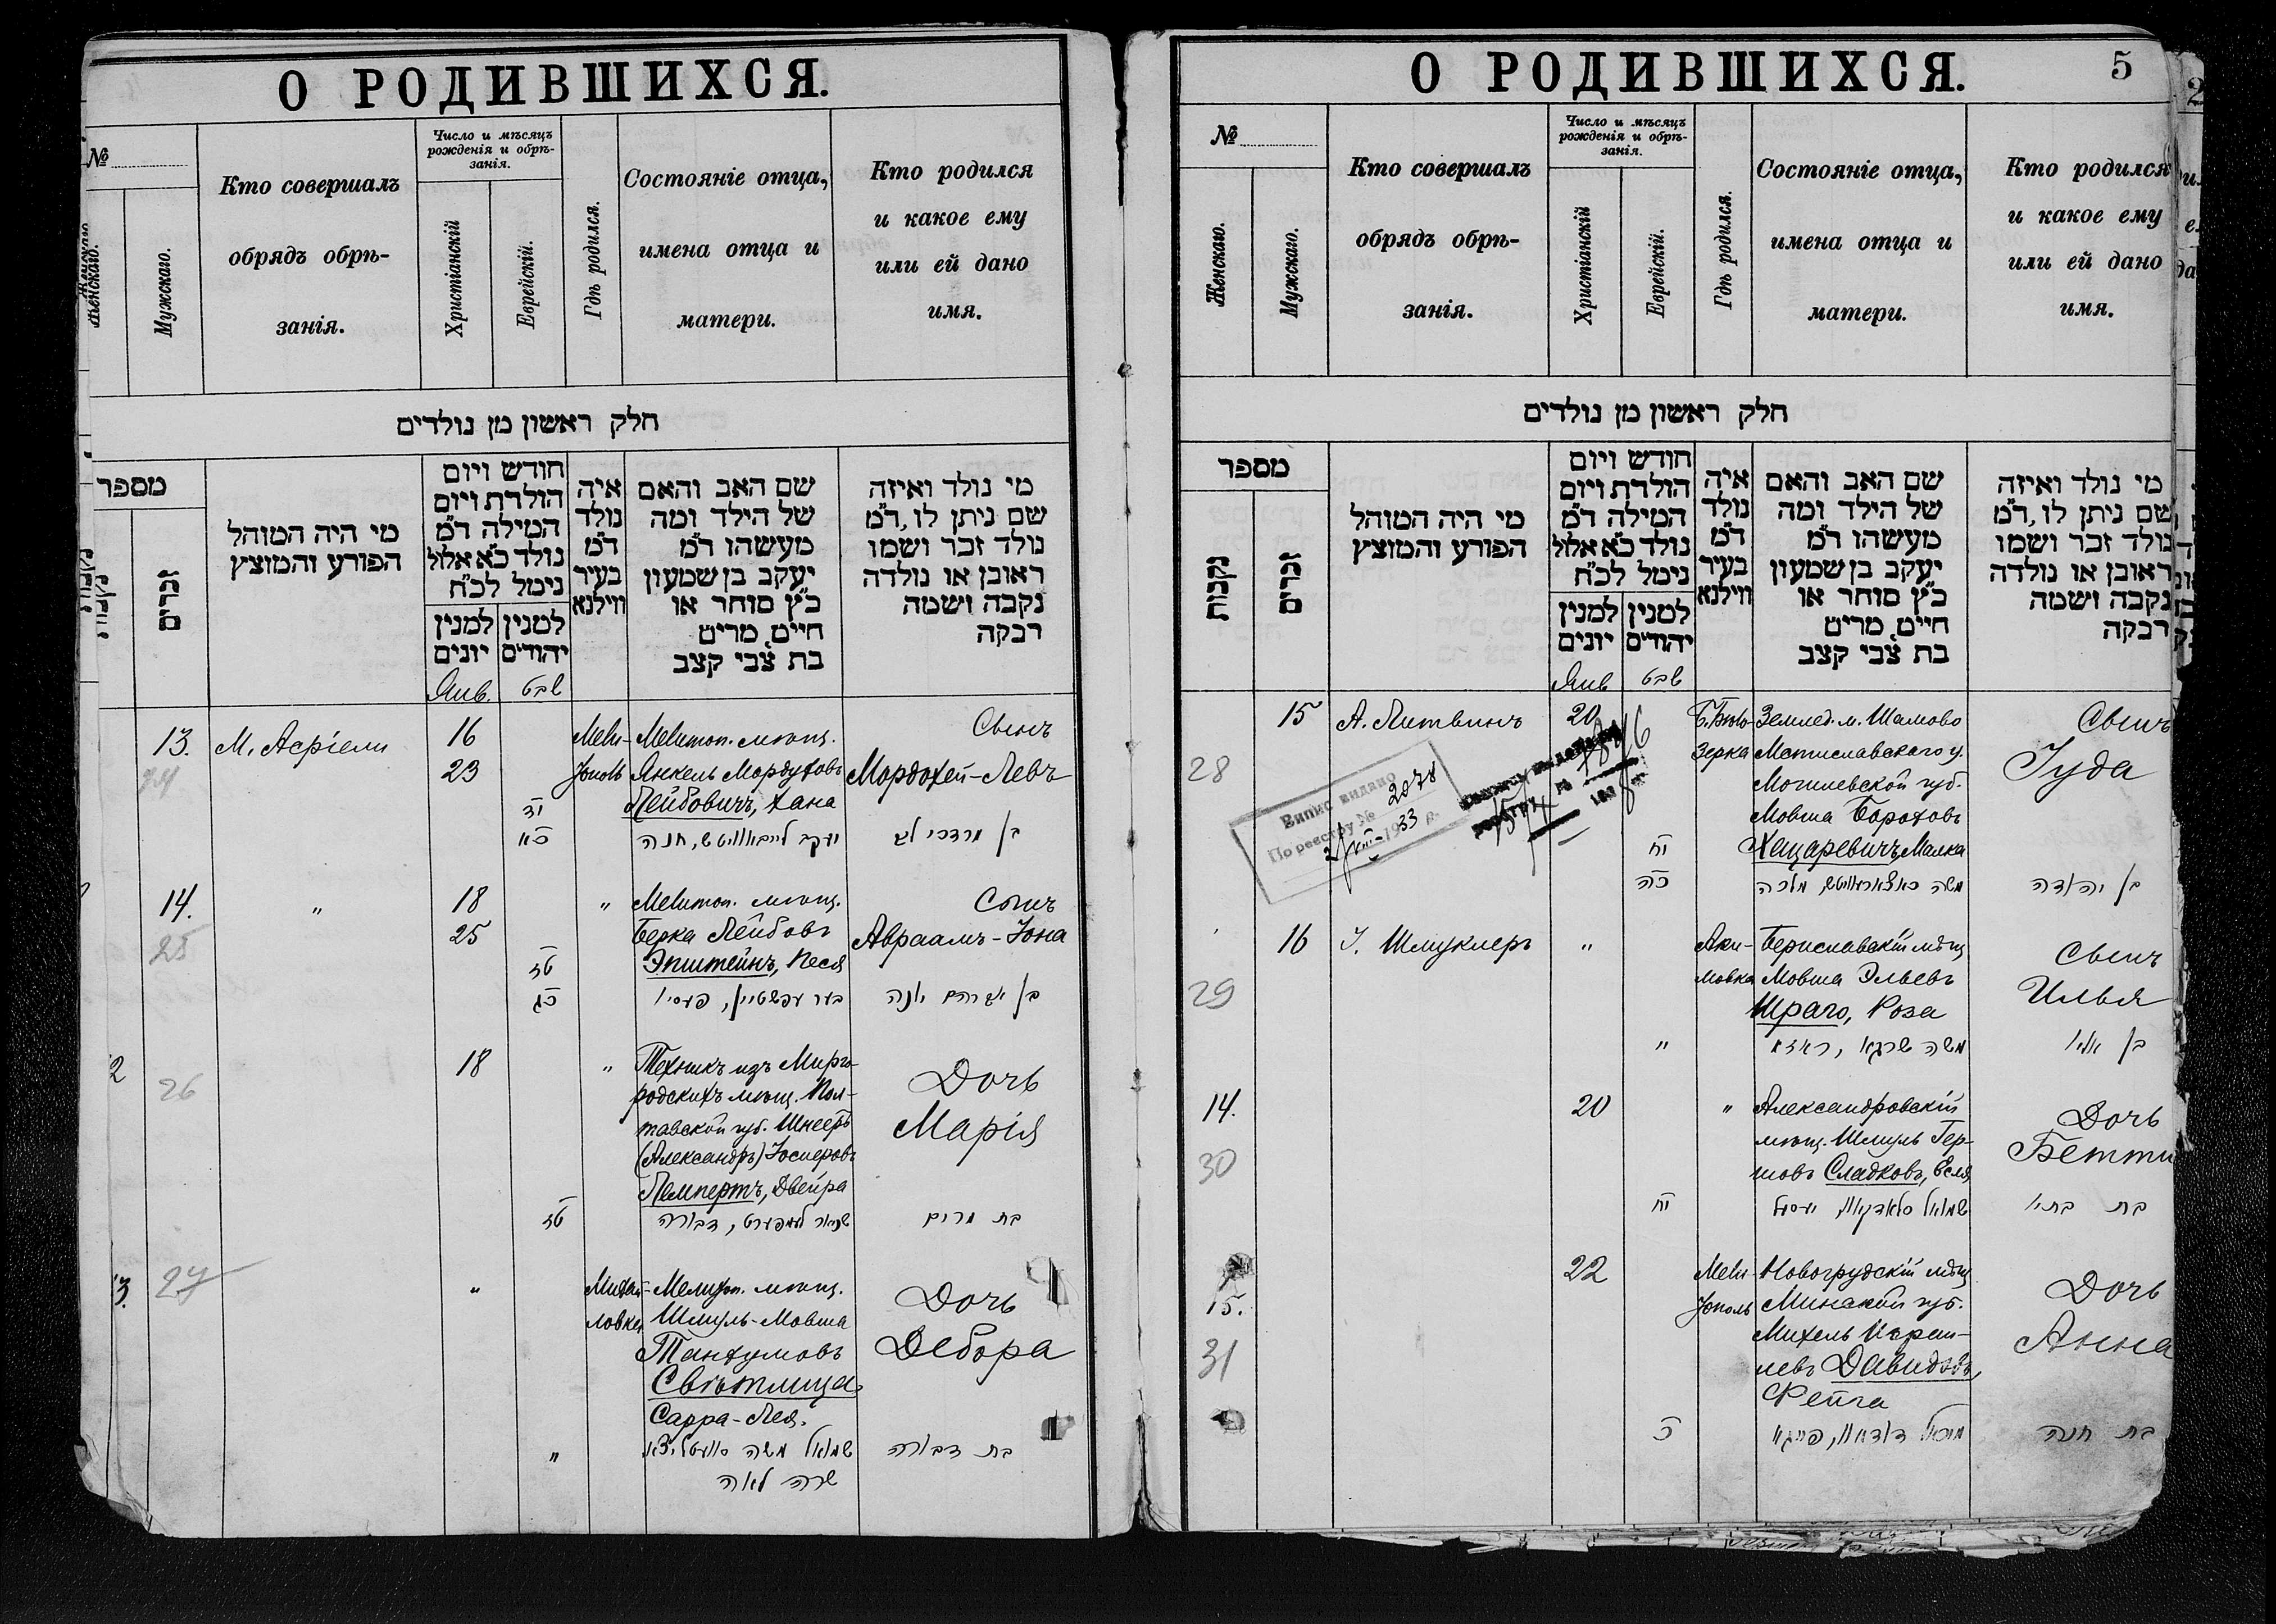 О РОДИВШИХСЯ.
№
Женскаго.
Мужскаго.
Кто совершалъ
обрядъ обрѣ-
занія.
Число и мѣсяцъ
рожденія и обрѣ-
занія.
Христіанскій
Еврейскій.
Гдѣ родился.
Состояніе отца,
имена отца и
матери.
Кто родился
и какое ему
или ей дано
имя.
חלק ראשון מן נולדים
מספר
זכרים
מי היה המוהל
הפורע והמוצץ
חודש ויום
הולדת ויום
המילה ד"מ
נולד כ"א אלול
נימל לכ"ח
למנין יונים
למנין יהודים
איה
נולד
ד"מ
בעיר
ווילנא
שם האב והאם
של הילד ומה
מעשהו ד"מ
יעקב בן שמעון
כ"ץ סוחר או
חיים, מרים
בת צבי קצב
מי נולד ואיזה
שם ניתן לו, ד"מ
נולד זכר ושמו
ראובן או נולדה
נקבה ושמה
רבקה
Янв. שבט
13. М. Асріели 16 Мели- Мелитоп. мѣщ. Сынъ
24 23 тополь Янкель Мордуховъ Мордохей-Левъ
Лейбовичъ, Хана
יד
כא יעקב לייבאוויטש, חנה בן מרדכי לב
14. " 18 " Мелитоп. мѣщ. Сынъ
25 25 Берка Лейбовъ Авраамъ-Іона
Эпштейнъ, Песя
טז
כג בער עפשטיין, פעסיא בן אברהם יונה
2 26 18 " Техникъ изъ Мирго- Дочь
родскихъ мѣщ. Пол-
тавской губ. Шнееръ Марія
(Александръ) Іосиеровъ
Лемпертъ, Двейра
טז שניאור לעמפערט, דבורה בת מרים
3. 27 " Михай- Мелитоп. мѣщ. Дочь
ловка Шмуль-Мовша
Танхумовъ Дебора
Свѣтлица
Сарра-Лея.
" שמואל משה סוועטליצא בת דבורה
שרה לאה
О РОДИВШИХСЯ. 5
№
Женскаго.
Мужскаго.
Кто совершалъ
обрядъ обрѣ-
занія.
Число и мѣсяцъ
рожденія и обрѣ-
занія.
Христіанскій
Еврейскій.
Гдѣ родился.
Состояніе отца,
имена отца и
матери.
Кто родился
и какое ему
или ей дано
имя.
חלק ראשון מן נולדים
מספר
נקבות
זכרים
מי היה המוהל
הפורע והמוצץ
חודש ויום
הולדת ויום
המילה ד"מ
נולד כ"א אלול
נימל לכ"ח
למנין יונים
למנין יהודים
איה
נולד
ד"מ
בעיר
ווילנא
שם האב והאם
של הילד ומה
מעשהו ד"מ
יעקב בן שמעון
כ"ץ סוחר או
חיים, מרים
בת צבי קצב
מי נולד ואיזה
שם ניתן לו, ד"מ
נולד זכר ושמו
ראובן או נולדה
נקבה ושמה
רבקה
Янв שבט
15 А. Литвинъ 20 Б.Бѣло- Землед. м. Шамово Сынъ
28 зерка Мстиславскаго у. Іуда
Могилевской губ.
Мовша Бороховъ
Хацаревичъ, Малка
יח
כה משה כאצארעוויטש, מלכה בן יהודה
Випис видано
По реєстру № 2078
16 І. Шмуклеръ " Аки- Бериславскій мѣщ Сынъ
29 мовка Мовша Эльевъ Илья
Шраго, Роза
" משה שרגא, ראזא בן אליו
14. 20 " Александровскій Дочь
30 мѣщ. Шмуль Гер- Бетти
шовъ Сладковъ, Еся
יח שמואל סלאדקאוו, בת בתיא
22 Мели- Новогрудскій мѣщ Дочь
15. тополь Минской губ.
31 Михель Израи- Анна
левъ Давидовъ,
Фейга
כ מיכאל דאווידאוו, פייגא בת חנה